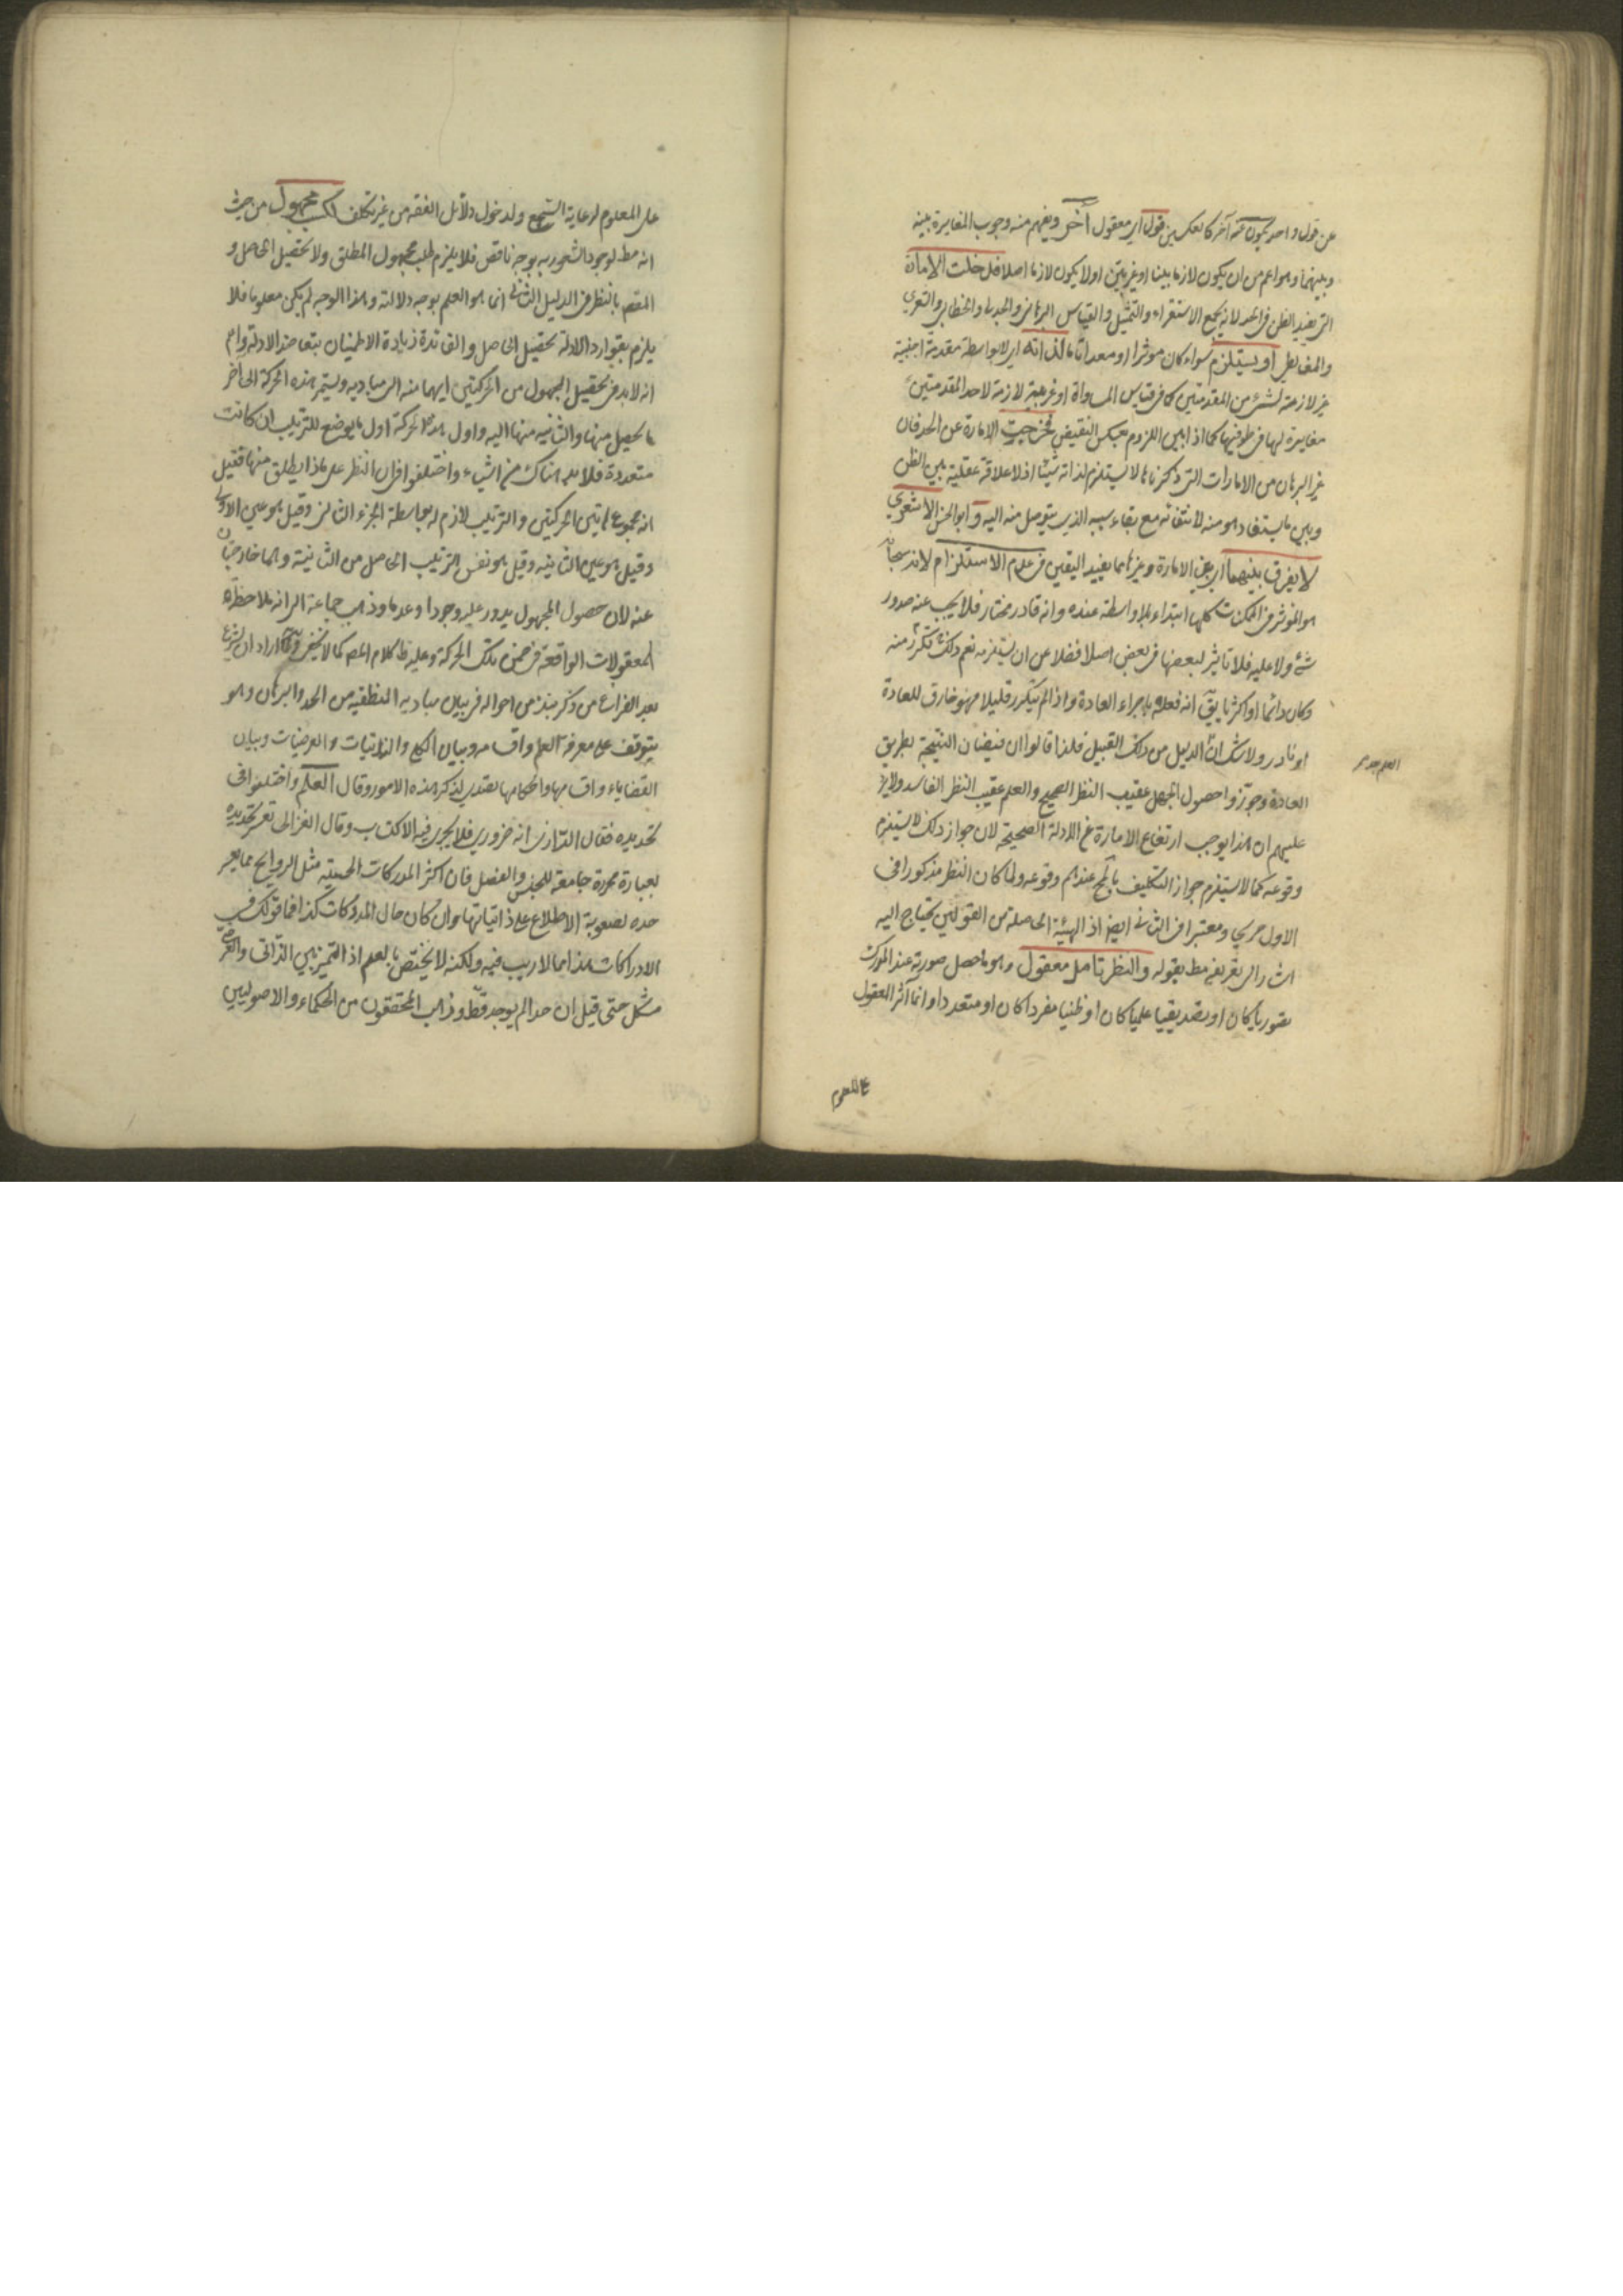 عن قول واحد يكون عنه آخر كالعكس قول اى معقول آخر ويفهم منه وجوب المغايرة بينه
وبينهما وهو اعم من ان يكون لازما بينا او غير بين او لا يكون لازما اصلا فدخلت الامارة
التى تفيد الظن فى الحد لانه يجمع الاستقراء والتمثيل والقياس البرهانى والجدلى والخطابى والشعرى
والمغالطى او يستلزم سواء كان موثرا او معدا تاما لذاته اى لا بواسطة مقدمة اجنبية
غير لازمة لشئ من المقدمتين كما فى قياس المساواة او غريبة لازمة لاحد المقدمتين
مغايرة لها فى طرفيها كما اذا بين اللزوم بعكس النقيض فخرجت الامارة عن الحد فان
غير البرهان من الامارات التى ذكرناها لا يستلزم لذاته شيئا اذ لا علاقة عقلية بين الظن
وبين ما يستفاد هو منه لانتفائه مع بقاء سببه الذى يتوصل منه اليه وابو الحسن الاشعرى
لا يفرق بينهما اى بين الامارة وغيرها مما يفيد اليقين فى عدم الاستلزام لانه سبحانه
هو الموثر فى الممكنات كلها ابتداء بلا واسطة عنده وانه قادر مختار فلا يجب عنه صدور
شئ ولا عليه فلا تاثير لبعضها فى بعض اصلا فضلا عن ان يستلزمه نعم ذلك ما تكرر منه
وكان دائما او اكثريا يق انه فعله باجراء العادة واذا لم يتكرر قليلا فهو خارق للعادة
او نادر ولا شك ان الدليل من ذلك القبيل فلذا قالوا ان فيضان النتيجة بطريق
العادة وجوزوا حصول الجهل عقيب النظر الصحيح والعلم عقيب النظر الفاسد ولا يرد
عليهم ان هذا يوجب ارتفاع الامارة عن الادلة الصحيحة لان جواز ذلك لا يستلزم
وقوعه كما لا يستلزم جواز التكليف بالمح عندهم وقوعه ولما كان النظر مذكورا فى
الاول صريحا ومعتبرا فى الثانى ايضا اذ الهيئة الحاصلة من القولين يحتاج اليه
اشار الى تعريفه مط بقوله والنظر تامل معقول وهو ما حصل صورته عند المدرك
تصوريا كان او تصديقيا علميا كان او ظنيا مفردا كان او متعددا وانما آثر المعقول
على المعلوم
على المعلوم لرعاية السجع ولدخول دلائل الفقه من غير تكلف لكسب مجهول من حيث
انه مط لوجود الشعور به بوجه ناقص فلا يلزم طلب مجهول المطلق ولا تحصيل الحاصل و
المقصود بالنظر فى الدليل الثانى انما هو العلم بوجه دلالته وهذا الوجه لم يكن معلوما فلا
يلزم بتوارد الادلة تحصيل الحاصل والفائدة زيادة الاطمينان بتعاضد الادلة واعلم
انه لابد فى تحصيل المجهول من الحركتين ايهما منه الى مباديه ويستمر هذه الحركة الى آخر
ما يحصل منها والثانية منها اليه واول هذه الحركة اول ما يوضع للترتيب ان كانت
متعددة فلا بد هناك من اشياء واختلفوا فى ان النظر على ماذا يطلق منها فقيل
انه مجموع هاتين الحركتين والترتيب لازم له بواسطة الجزء الثانى وقيل هو عين الاولى
وقيل هو عين الثانية وقيل هو نفس الترتيب الحاصل من الثانية وهما خارجتان
عنه لان حصول المجهول يدور عليه وجودا وعدما وذهب جماعة الى انه ملاحظة
المعقولات الواقعة فى ضمن تلك الحركة وعليه ظ كلام المص كما لا يخفى ولما اراد ان يشرع
بعد الفراغ من ذكر نبذ من احواله فى بيان مباديه المنطقية من الحد والبرهان وهو
يتوقف على معرفة العلم واقسامه وبيان الكلى والذاتيات والعرضيات وبيان
القضايا واقسامها واحكامها تصدى لذكر هذه الامور وقال العلم واختلفوا فى
تحديده فقال الرازى انه ضرورى فلا يجرى فيه الاكتساب وقال الغزالى تعسر تحديده
بعبارة محررة جامعة للجنس والفصل فان اكثر المدركات الحسية مثل الروايح مما يعسر
حده لصعوبة الاطلاع على ذاتياتها وان كان حال المدركات كذا فما قولك فى
الادراكات هذا مما لا ريب فيه ولكنه لا يختص بالعلم اذ التميز بين الذاتى والعرضى
مشكل حتى قيل ان حدا لم يوجد قط وذهب المحققون من الحكماء والاصوليين